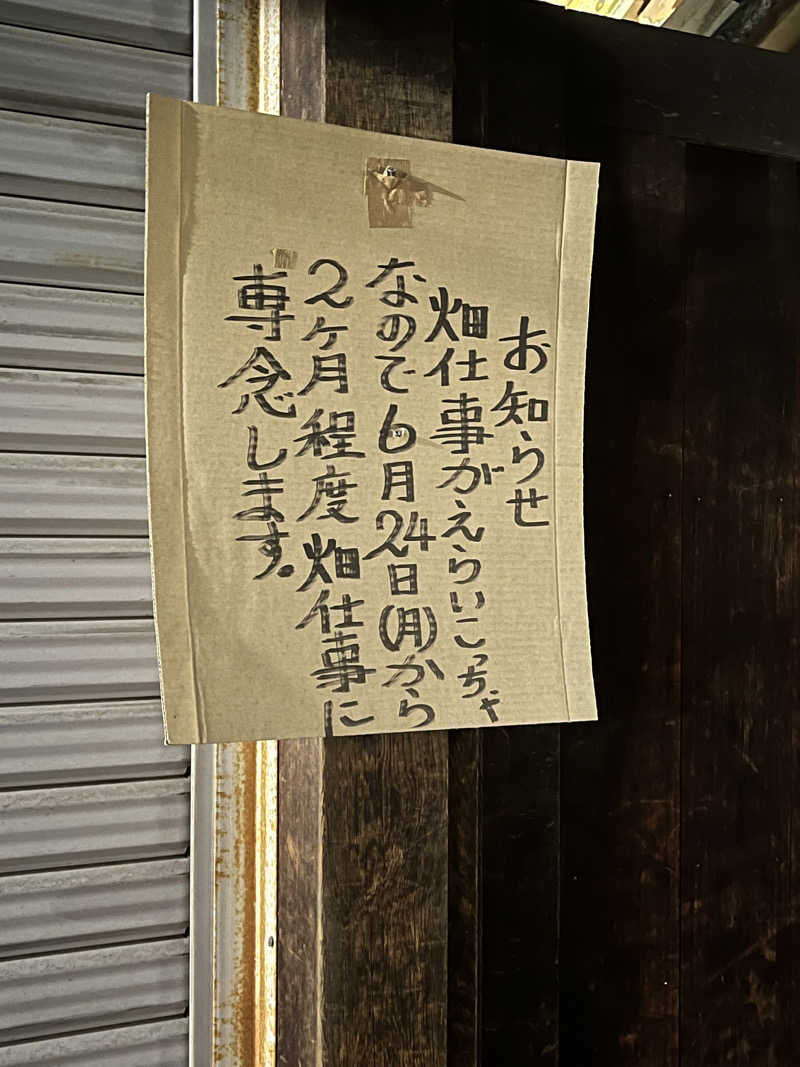 お知らせ
畑仕事がえらいこっちゃ
なので6月24日(月)から
2ヶ月程度畑仕事に
専念します。